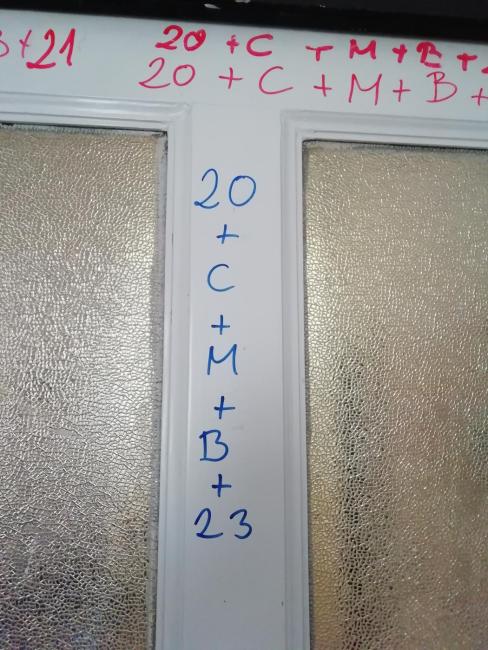 B+21
20 + C + M + B +
20 + C + M + B +
20
+
C
+
M
+
B
+
23